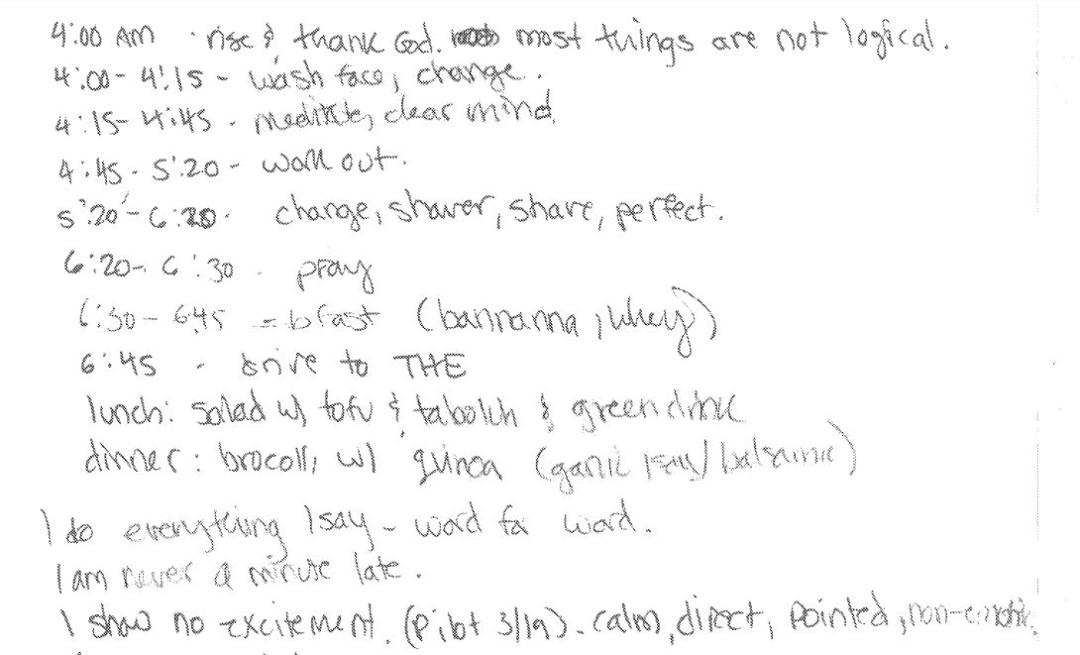 4:00 AM · rise & thank God. most things are not logical.
4:00 - 4:15 - wash face, change.
4:15 - 4:45 - meditate, clear mind.
4:45 - 5:20 - work out.
5:20 - 6:20 - change, shower, shave, perfect.
6:20 - 6:30 - pray
6:30 - 6:45 = bfast (bannanna, whey)
6:45 - drive to THE
lunch: salad w/ tofu & taboleh & green drink
dinner: brocolli w/ quinoa (garlic / balsamic)
I do everything I say - word for word.
I am never a minute late.
I show no excitement. (Pilot 3/19). calm, direct, pointed, non-emotive.